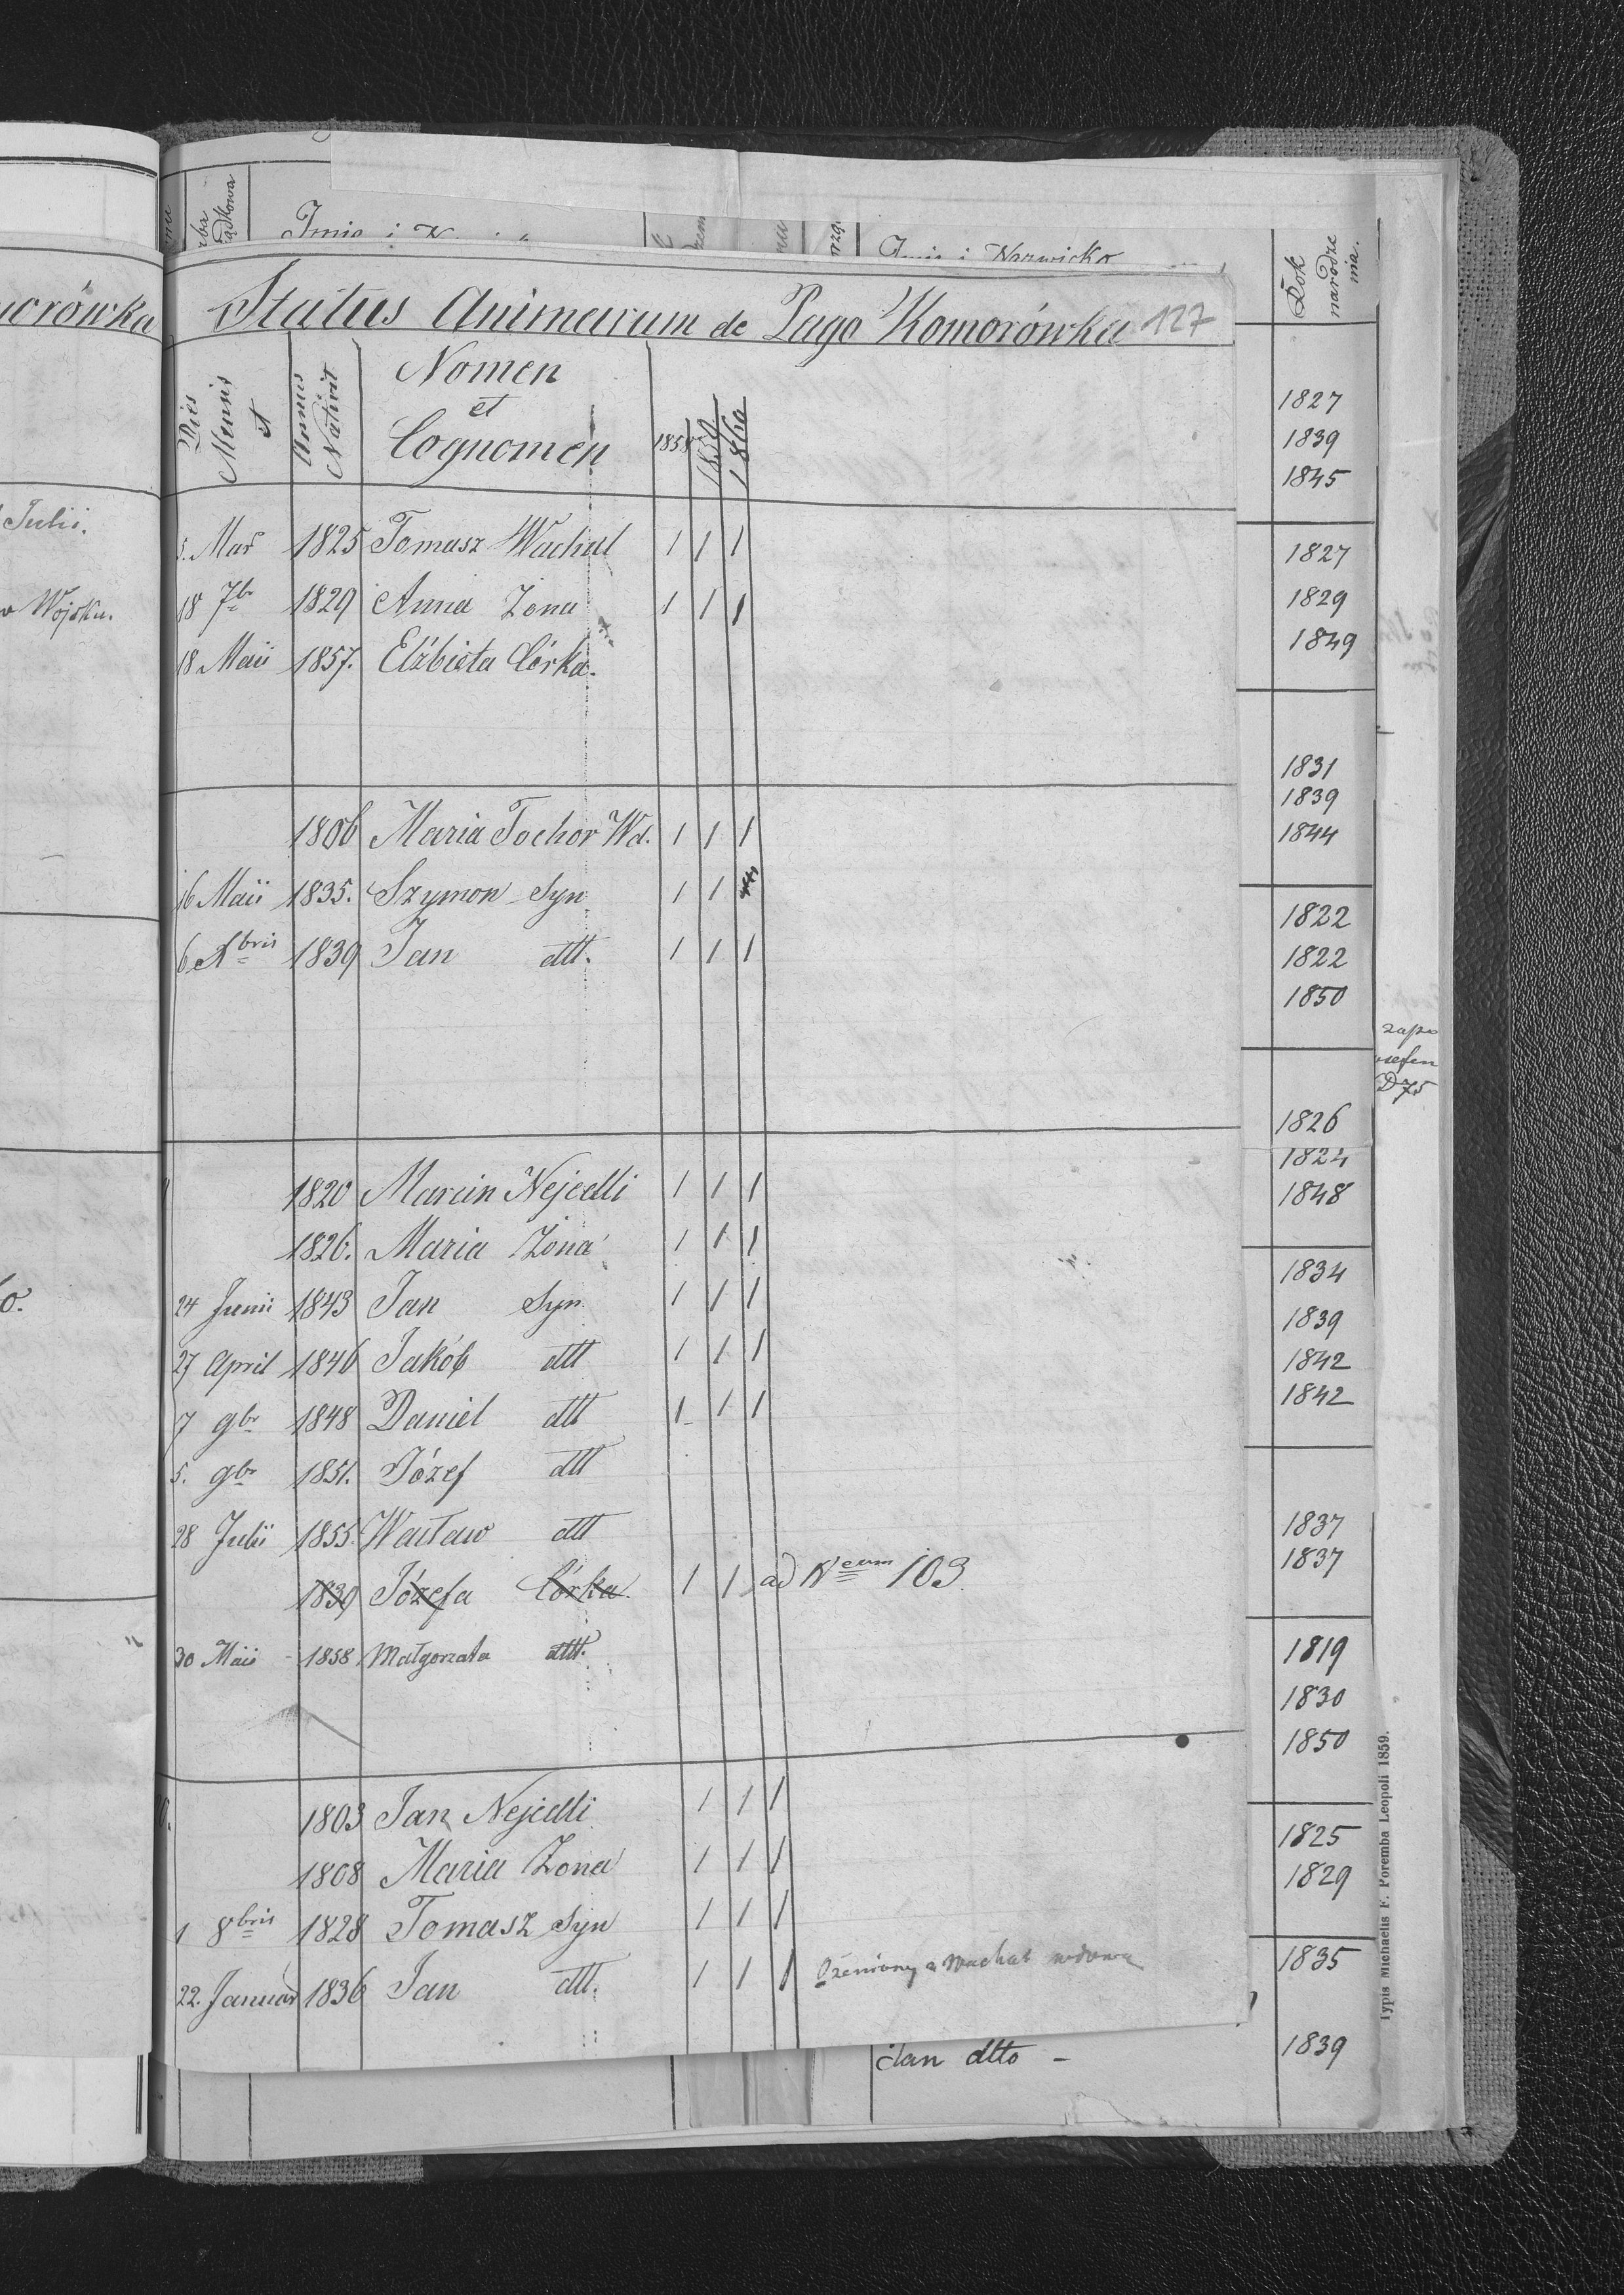 morówka
Julii.
w Wojsku.
Imie i
Imie i Nazwisko
Rok
narodze
nia.
Status Animarum de Pago Komorówka 127
Dies
Mensis
et
Annus
Nativit
Nomen
et
Cognomen
1858
1859
1860
5. Mar 1825 Tomasz Wachal 1 1 1
18 7br 1829 Anna Żona 1 1 1
18 Maii 1857. Elżbieta Córka.
1806 Maria Tochor Wd. 1 1 1
16 Maii 1835. Szymon Syn 1 1
6 Xbris 1839 Jan dtt. 1 1 1
1820 Marcin Nejedli 1 1 1
1826. Maria Żona 1 1 1
24 Junii 1843 Jan Syn 1 1 1
27 April 1846 Jakób dtt 1 1 1
7 9br 1848 Daniel dtt 1 1 1
5. 9br 1851. Józef dtt
28 Julii 1855. Wacław dtt
1839 Józefa Córka. 1 1 ad Neum 103.
30 Maii - 1858 Małgorzata dttt.
1803 Jan Nejedli 1 1 1
1808 Maria Żona 1 1 1
1 8bris 1828 Tomasz Syn 1 1 1
22. Januar 1836 Jan dtt. 1 1 1 Ożeniony z Wachal wdową
Jan dtto -
1827
1839
1845
1827
1829
1849
1831
1839
1844
1822
1822
1850
1826
1824
1848
1834
1839
1842
1842
1837
1837
1819
1830
1850
1825
1829
1835
1839
zapo
D 75
Typis Michaelis F. Poremba Leopoli 1859.